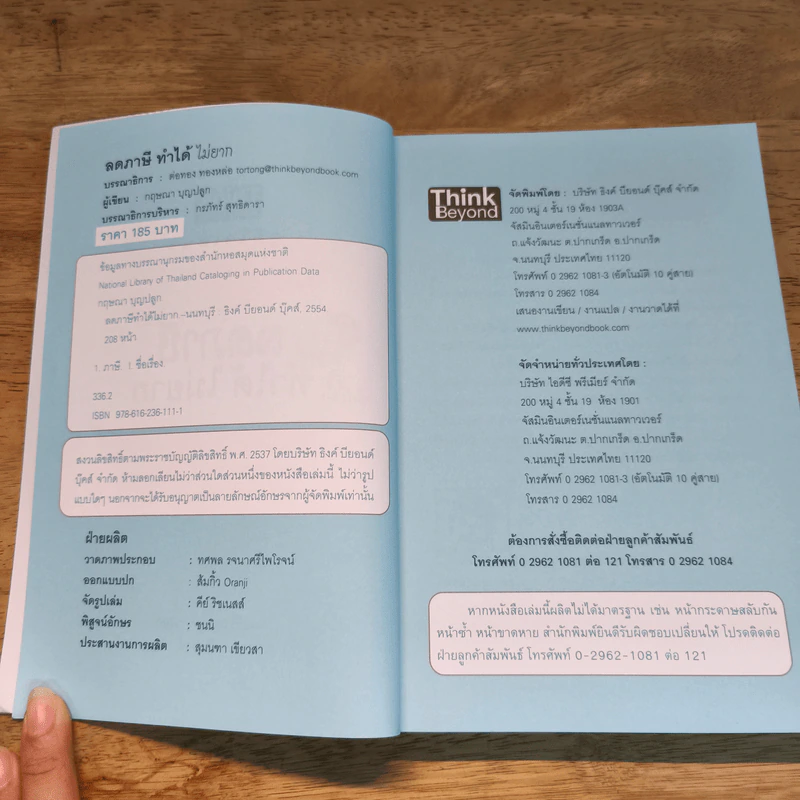 ลดภาษี ทำได้ ไม่ยาก
บรรณาธิการ : ต่อทอง ทองหล่อ tortong@thinkbeyondbook.com
ผู้เขียน : กฤษณา บุญปลูก
บรรณาธิการบริหาร : กรภัทร์ สุทธิดารา
ราคา 185 บาท
ข้อมูลทางบรรณานุกรมของสำนักหอสมุดแห่งชาติ
National Library of Thailand Cataloging in Publication Data
กฤษณา บุญปลูก
ลดภาษีทำได้ไม่ยาก.-นนทบุรี : ธิงค์ บียอนด์ บุ๊คส์, 2554
208 หน้า
1. ภาษี. I. ชื่อเรื่อง.
336.2
ISBN 978-616-236-111-1
สงวนลิขสิทธิ์ตามพระราชบัญญัติลิขสิทธิ์ พ.ศ. 2537 โดยบริษัท ธิงค์ บียอนด์
บุ๊คส์ จำกัด ห้ามลอกเลียนไม่ว่าส่วนใดส่วนหนึ่งของหนังสือเล่มนี้ ไม่ว่ารูป
แบบใดๆ นอกจากจะได้รับอนุญาตเป็นลายลักษณ์อักษรจากผู้จัดพิมพ์เท่านั้น
ฝ่ายผลิต
วาดภาพประกอบ : ทศพล รจนาศรีไพโรจน์
ออกแบบปก : ส้มกิ้ว Oranji
จัดรูปเล่ม : คีย์ ริชเนสส์
พิสูจน์อักษร : ชนนิ
ประสานงานการผลิต : สุมนฑา เขียวสา
Think
Beyond
จัดพิมพ์โดย : บริษัท ธิงค์ บียอนด์ บุ๊คส์ จำกัด
200 หมู่ 4 ชั้น 19 ห้อง 1903A
จัสมินอินเตอร์เนชั่นแนลทาวเวอร์
ถ.แจ้งวัฒนะ ต.ปากเกร็ด อ.ปากเกร็ด
จ.นนทบุรี ประเทศไทย 11120
โทรศัพท์ 0 2962 1081-3 (อัตโนมัติ 10 คู่สาย)
โทรสาร 0 2962 1084
เสนองานเขียน / งานแปล / งานวาดได้ที่
www.thinkbeyondbook.com
จัดจำหน่ายทั่วประเทศโดย :
บริษัท ไอดีซี พรีเมียร์ จำกัด
200 หมู่ 4 ชั้น 19 ห้อง 1901
จัสมินอินเตอร์เนชั่นแนลทาวเวอร์
ถ.แจ้งวัฒนะ ต.ปากเกร็ด อ.ปากเกร็ด
จ.นนทบุรี ประเทศไทย 11120
โทรศัพท์ 0 2962 1081-3 (อัตโนมัติ 10 คู่สาย)
โทรสาร 0 2962 1084
ต้องการสั่งซื้อติดต่อฝ่ายลูกค้าสัมพันธ์
โทรศัพท์ 0 2962 1081 ต่อ 121 โทรสาร 0 2962 1084
หากหนังสือเล่มนี้ผลิตไม่ได้มาตรฐาน เช่น หน้ากระดาษสลับกัน
หน้าซ้ำ หน้าขาดหาย สำนักพิมพ์ยินดีรับผิดชอบเปลี่ยนให้ โปรดติดต่อ
ฝ่ายลูกค้าสัมพันธ์ โทรศัพท์ 0-2962-1081 ต่อ 121